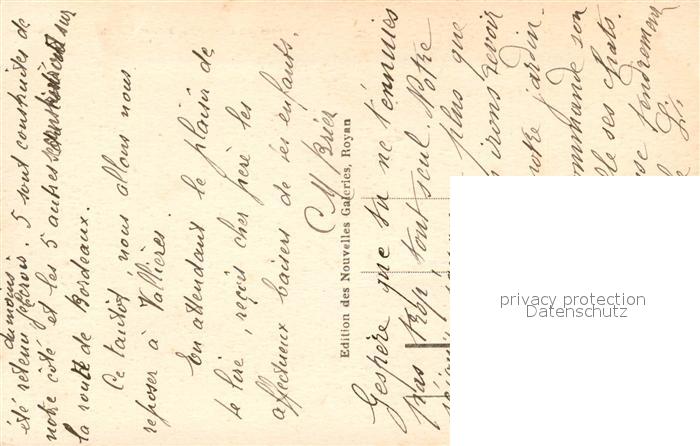 du moins
été retenu prévois. 5 sont construites de
notre côté et les 5 autres sur
la route de Bordeaux.
Ce tantôt nous allons nous
reposer à Vallières.
En attendant le plaisir de
te lire, reçois cher père les
affectueux baisers de tes enfants.
Edition des Nouvelles Galeries, Royan
J'espère que tu ne t'ennuies
pas trop tout seul. Notre
plus que
irons revoir
notre jardin.
commande son
elle ses chats.
tendrement
privacy protection
Datenschutz